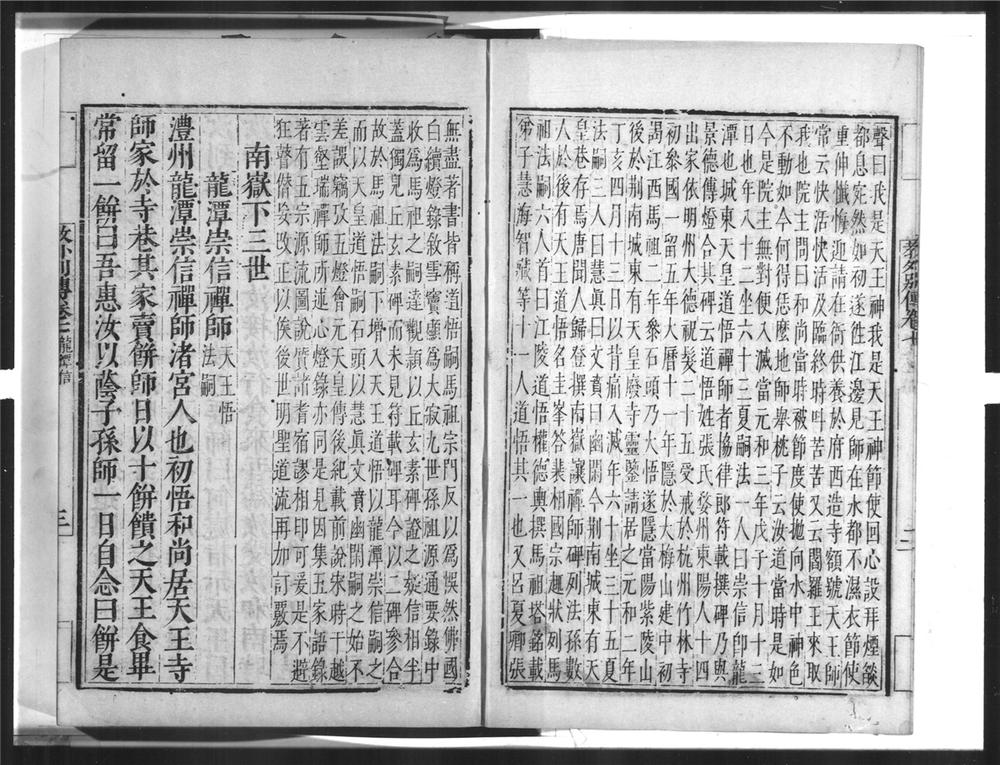 聲曰我是天王神我是天王神節使回心設拜煙燄
都息宛然如初遂往江邊見師在水都不濕衣節使
重伸懺悔迎請在衙供養於府西造寺額號天王師
常云快活快活及臨終時叫苦苦又云閻羅王來取
我也院主問曰和尚當時被節度使拋向水中神色
不動如今何得恁麼地師舉枕子云汝道當時是如
今是院主無對便入滅當元和三年戊子十月十三
日也年八十二坐六十三夏嗣法一人曰崇信即龍
潭也城東天皇道悟禪師者協律郎符載撰碑乃與
景德傳燈合其碑云道悟姓張氏婺州東陽人十四
出家依明州大德祝髮二十五受戒於杭州竹林寺
初參國一留五年大曆十一年隱於大梅山建中初
謁江西馬祖二年參石頭乃大悟遂隱當陽紫陵山
後於荆南城東有天皇廢寺靈鑒請居之元和二年
丁亥四月十三日以背痛入滅年六十坐三十五夏
法嗣三人曰慧真曰文賁曰幽閑今荆南城東有天
皇巷存焉唐聞人歸登撰南嶽讓禪師碑列法孫數
人於後有天王道悟名圭峯答裴相國宗趣狀列馬
祖法嗣六人首曰江陵道悟權德輿撰馬祖塔銘載
弟子慧海智藏等十一人道悟其一也又呂夏卿張
無盡著書皆稱道悟嗣馬祖宗門反以為悞然佛國
白續燈錄敘雪竇顯為大寂九世孫祖源通要錄中
收為馬祖之嗣達觀穎以丘玄素碑證之疑信相半
蓋獨見丘玄素碑而未見符載碑耳今以二碑參合
故於馬祖法嗣下增入天王道悟以龍潭崇信嗣之
而以天皇道悟嗣石頭以慧真文賁幽閑嗣之始不
差誤竊攷五燈會元天皇傳後紀載前說宋時于越
雲壑瑞禪師所述心燈錄亦同是見因集五家語錄
著有五宗源流圖說儹諸耆宿謬相印可爰是不避
狂瞽僭妄改正以俟後世明聖道流再加訂覈焉
南嶽下三世
龍潭崇信禪師 天王悟法嗣
澧州龍潭崇信禪師渚宮人也初悟和尚居天王寺
師家於寺巷其家賣餅師日以十餅饋之天王食畢
常留一餅曰吾惠汝以蔭子孫師一日自念曰餅是